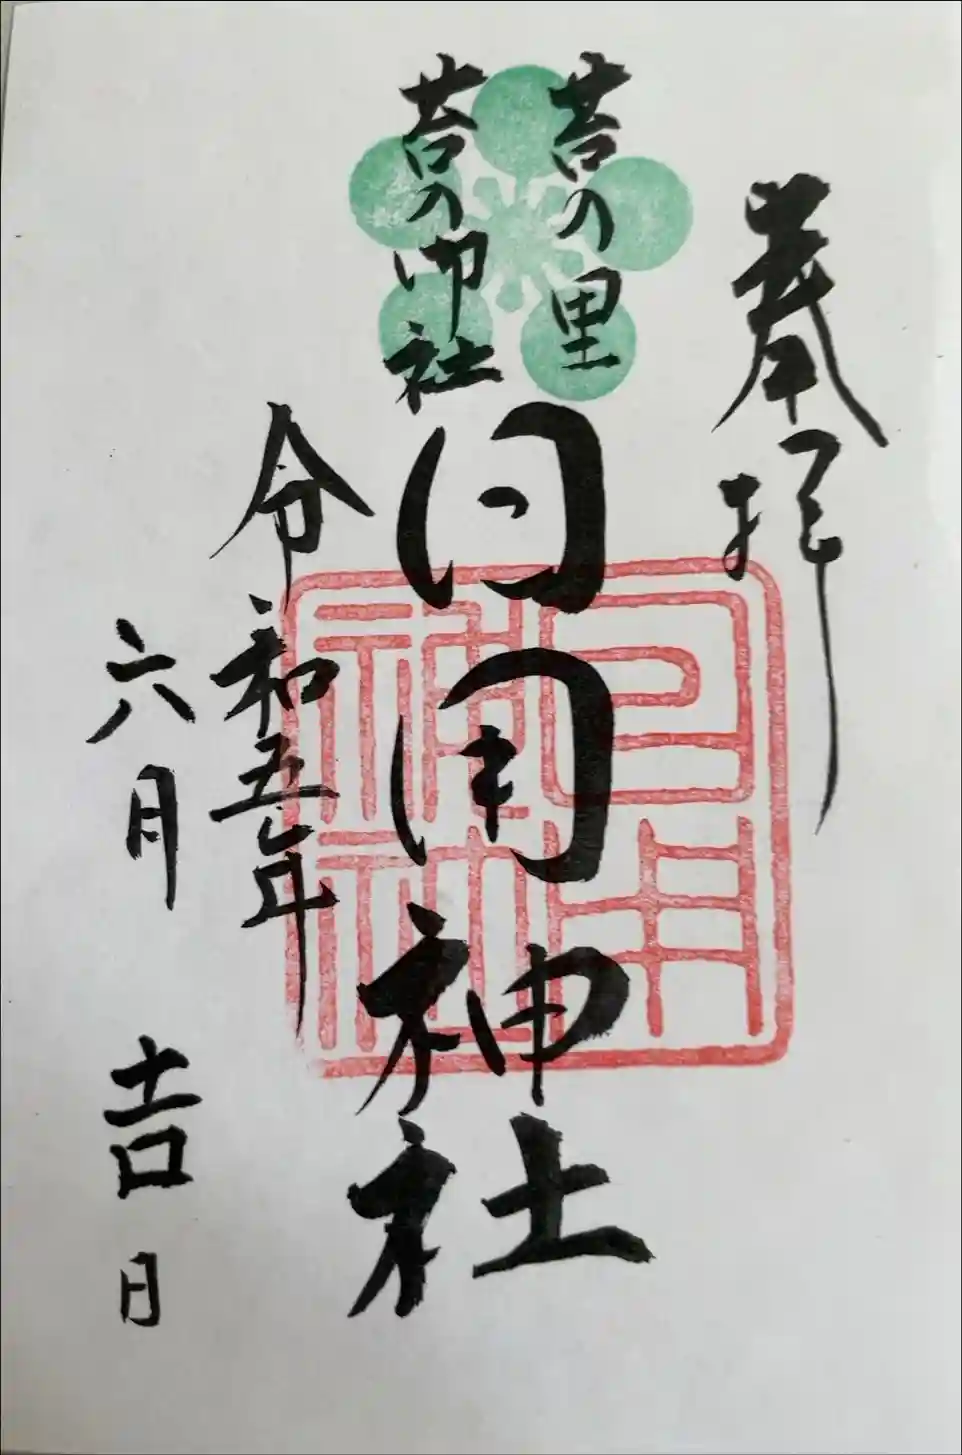 奉拝
苔の里
苔の御社
日用神社
令和五年
六月吉日
日用
神社